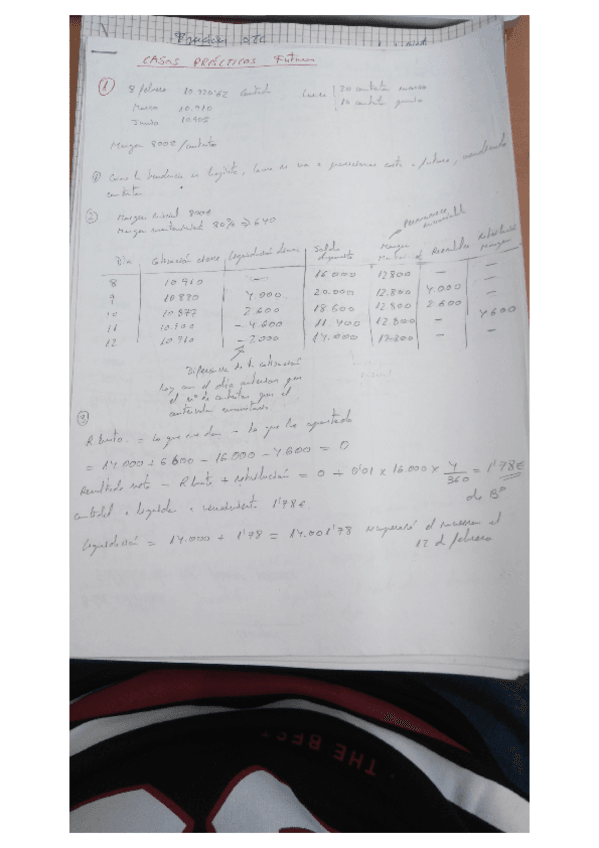 CASOS PRÁCTICOS Futuros
① 8 febrero contado Lucas 20 contratos marzo
Marzo 10.910 10 contratos junio
Junio 10.905
Margen 800€/contrato
① Como la tendencia es bajista, Lucas se va a posicionar corto a futuro, vendiendo
contratos.
② Margen inicial 800€
Margen mantenimiento 80% ⇒ 640
permanece
Día Cotización cierre Liquidación diaria Saldo depósito Margen Reembolso margen
8 10.910 — 16.000 12.800 — —
9 10.890 4.000 20.000 12.800 4.000 —
10 10.877 2.600 18.600 12.800 2.600 —
11 10.900 - 4.600 11.400 12.800 — 4.600
12 10.910 - 2000 14.000 12.800 — —
Diferencia de la cotización
hoy con el día anterior por
el nº de contratos por el
③
R bruto = lo que me dan - lo que he aportado
= 14.000 + 6.600 - 16.000 - 4.600 = 0
Resultado neto = R bruto + retribución = 0 + 0'01 × 16.000 × 4/360 = 1'78€
de Bº
cantidad a liquidar: rendimiento 1'78€.
Liquidación = 14.000 + 1'78 = 14.001'78 recuperará el inversor el
12 de febrero
THE BEST